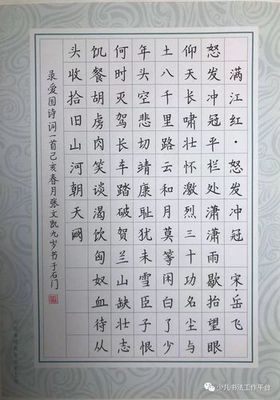 满江红·怒发冲冠 宋岳飞
怒发冲冠平栏处潇潇雨歇抬望眼
仰天长啸壮怀激烈三十功名尘与
土八千里路云和月莫等闲白了少
年头空悲切靖康耻犹未雪臣子恨
何时灭驾长车踏破贺兰山缺壮志
饥餐胡虏肉笑谈渴饮匈奴血待从
头收拾旧山河朝天阙
录爱国诗词一首己亥春月张文凯九岁书于石门
少儿书法工作平台